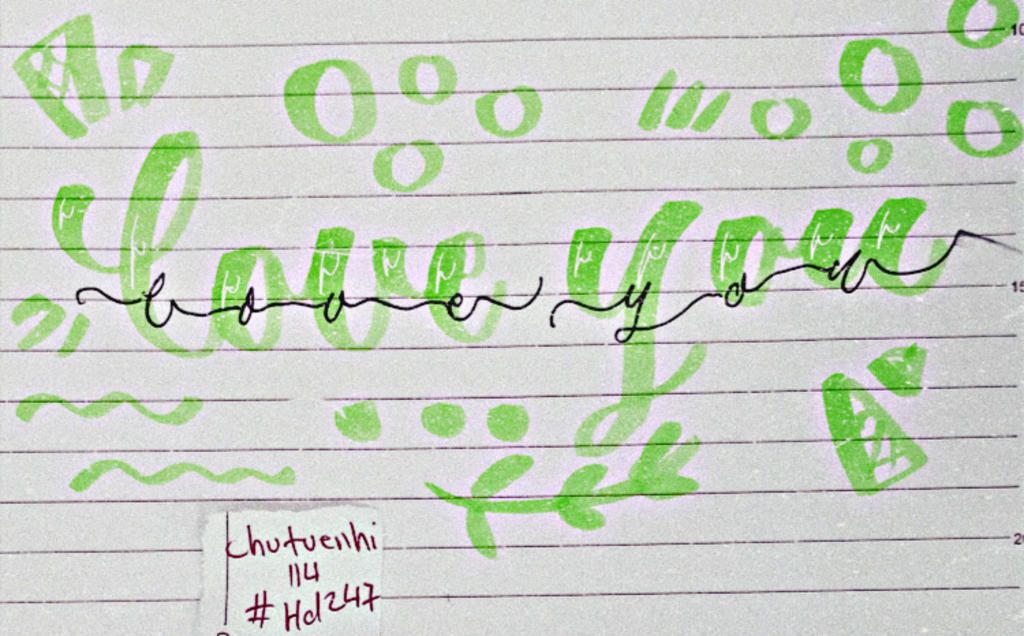 10
love you
love you
15
20
chutuenhi
114
#Hd247